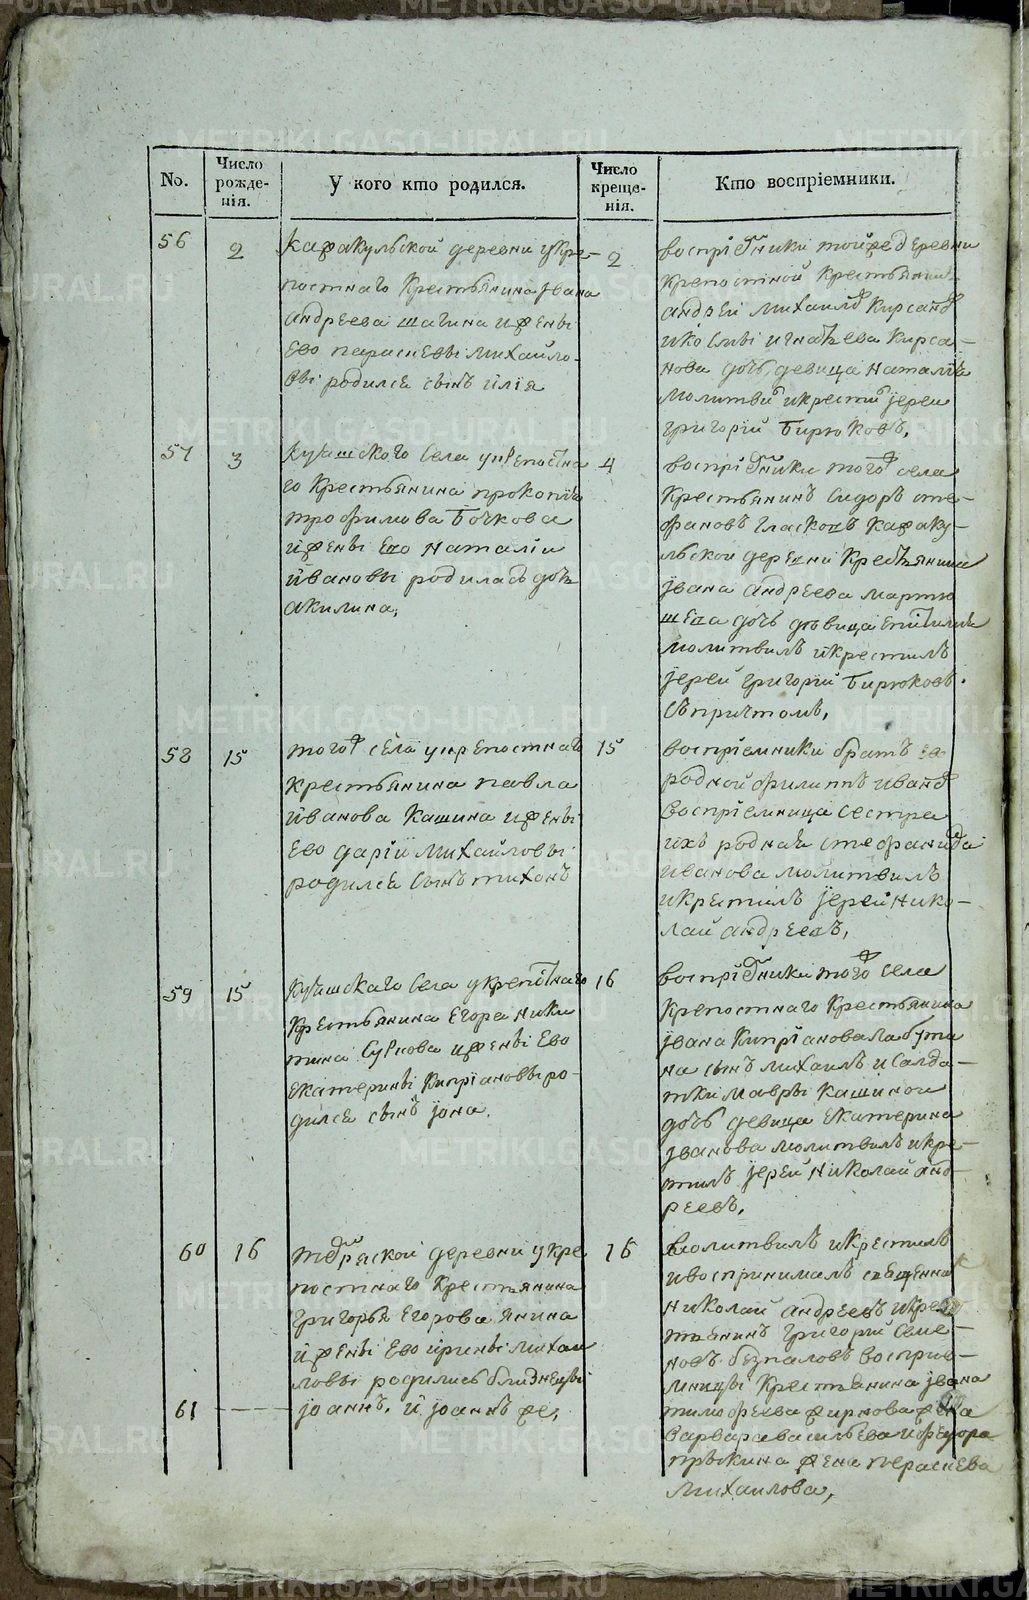 No.
Число рожденія.
У кого кто родился.
Число крещенія.
Кто воспріемники.
56
2
деревни укре-
постнаго крестьянина Iвана
андреева шагина и жены
ево параскевы михайло-
вы родился сынъ илiя
2
воспріемники тойже деревни
крепостной крестьянин
андрей михаиловъ кирсановъ
игнатьева кирса-
нова дочь девица наталiя
молитвил и крестил iерей
григорiй бирюковъ,
57
3
села укрепостна
го крестьянина прокопiя
трофимова бочкова
и жены ево наталiи
ивановы родилась дочь
акилина,
4
воспріемники тогож села
крестьянинъ сидоръ сте-
фановъ
льской деревни крестьянина
iвана андреева мартю
шева дочь девица
молитвилъ и крестилъ
iерей григорiй бирюковъ.
съ причтомъ,
58
15
тогож села у крепостнаго
крестьянина павла
иванова кашина и жены
ево дарiи михайловы
родился сынъ тихонъ
15
воспріемники братъ ево
родной филиппъ ивановъ
воспріемница сестра
ихъ родная стефанида
иванова молитвилъ
и крестилъ iерей нико-
лай андреевъ,
59
15
села у крепостнаго
крестьянина егора ники
тина суркова и жены ево
екатерины кипрiановы ро-
дился сынъ iона.
16
воспріемники тогож села
крепостнаго крестьянина
iвана кипрiанова лабути
на сынъ михаилъ и салда-
тки мавры кашиной
дочь девица екатерина
iванова молитвилъ и кре-
тилъ iерей николай анд-
реевъ,
60
16
деревни у кре
постнаго крестянина
григорья егорова янина
и жены ево ирины михаи
ловы родились близнецы
61
iоаннъ. и iоаннъ же,
16
молитвилъ и крестилъ
и воспринималъ священник
николай андреевъ и крес
тьянинъ григорiй семе-
новъ безпаловъ воспрiе-
мницы крестьянина iвана
тимофеева жирнова жена
варвара васильева и федора
пряхина жена параскева
михаилова,
METRIKI.GASO-URAL.RU